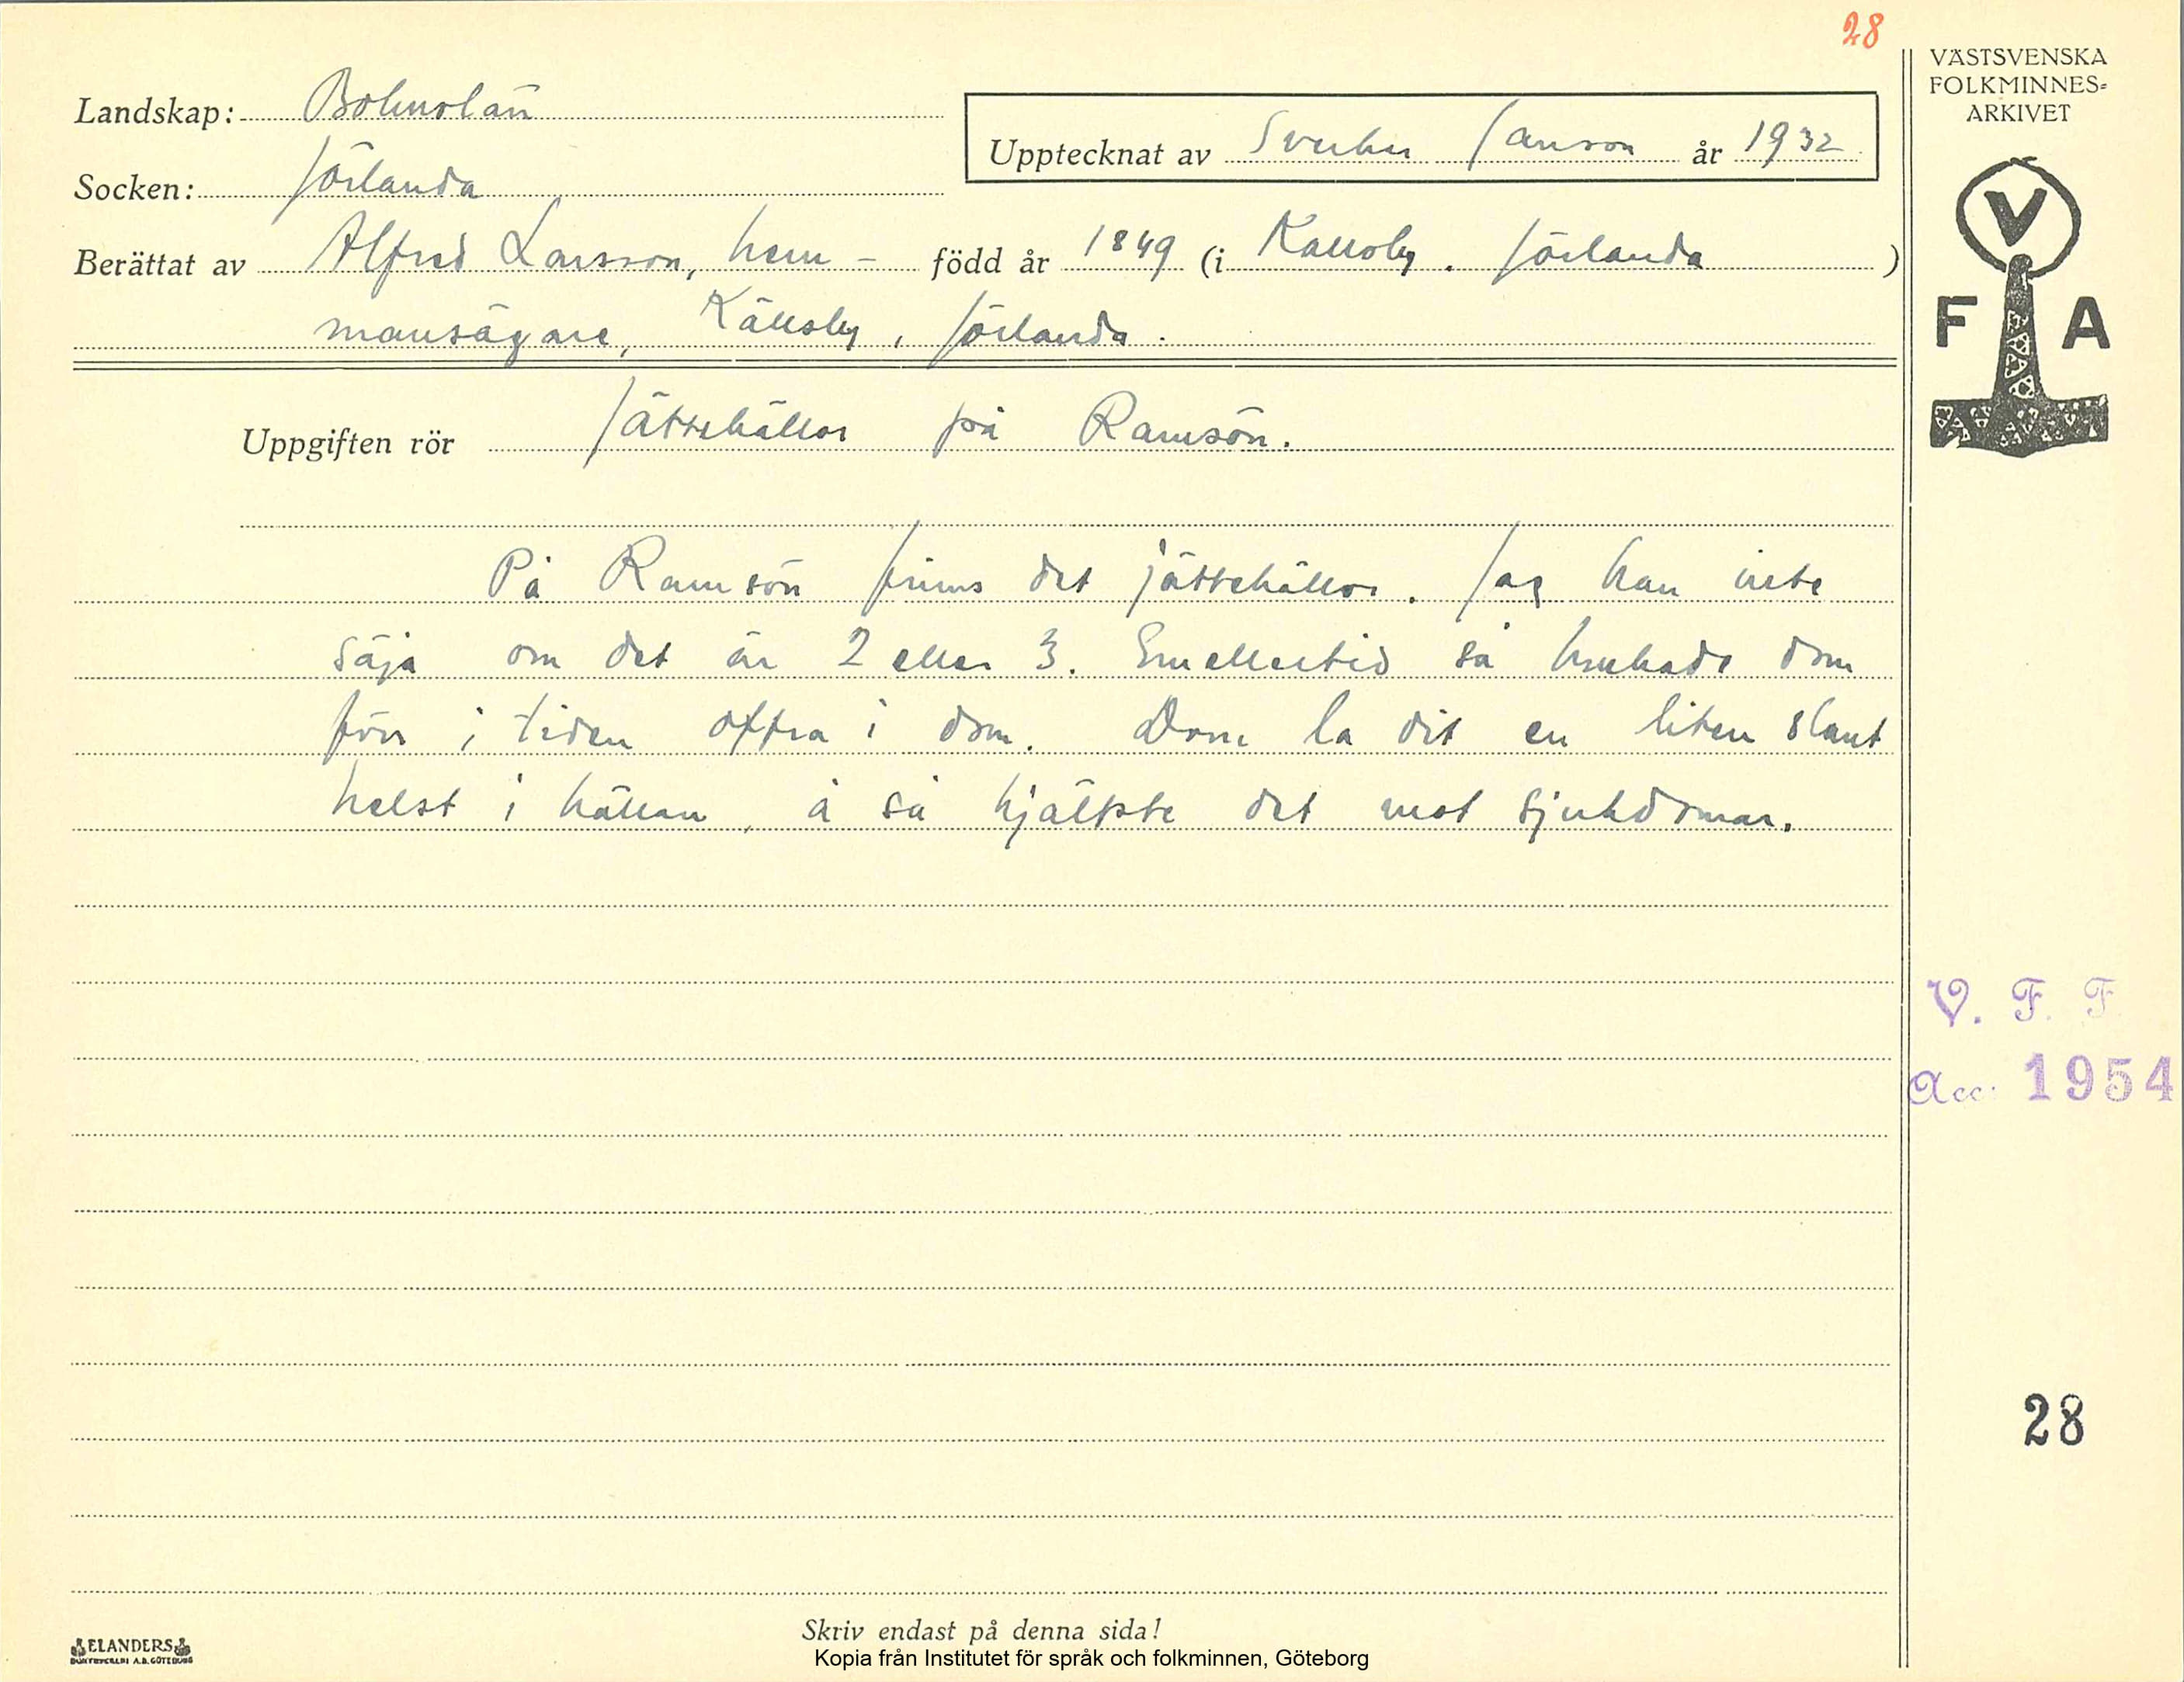 28
VÄSTSVENSKA
FOLKMINNES-
ARKIVET
Landskap: Bohuslän
Upptecknat av Sverker Janson år 1932
Socken: Jörlanda
Berättat av Alfred Larsson, hem- född år 1849 (i Källsby, Jörlanda)
mansägare, Källsby, Jörlanda.
V
F A
Uppgiften rör Jättekällor på Ramsön.
På Ramsön finns det jättekällor. Jag kan inte
säja om det är 2 eller 3. Emellertid så brukade dom
förr i tiden offra i dom. Dom la dit en liten slant
helst i källan, å så hjälpte det mot sjukdomar.
V. F. F
Acc. 1954
28
Skriv endast på denna sida!
ELANDERS
BOKTRYCKERI A.B. GÖTEBORG
Kopia från Institutet för språk och folkminnen, Göteborg